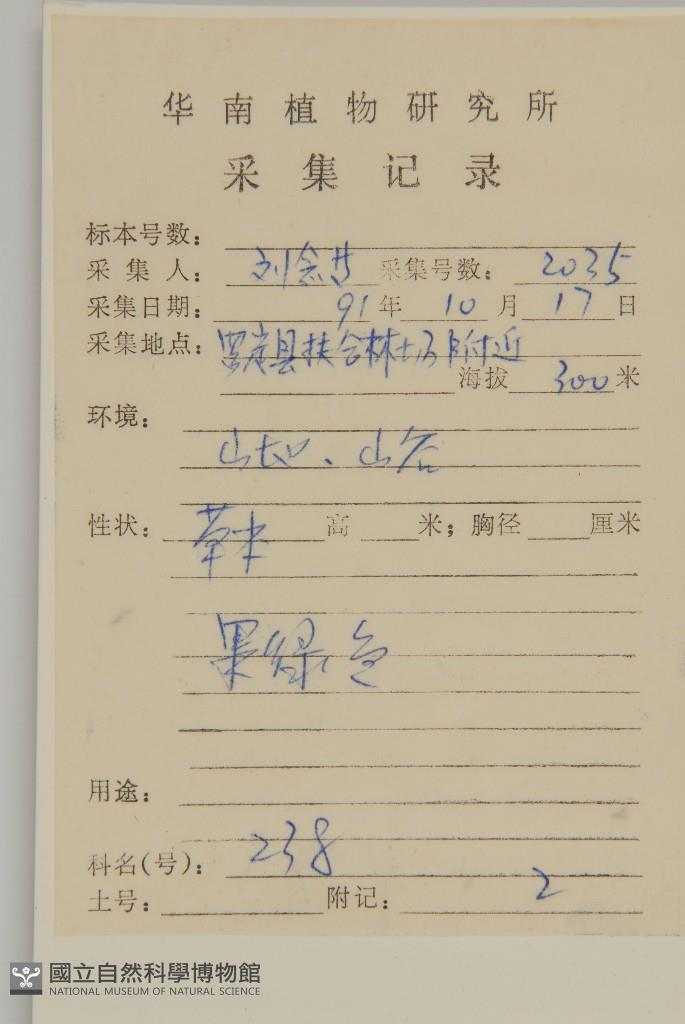 华南植物研究所
采集记录
标本号数:
采集人: 刘念 采集号数: 2035
采集日期: 91年 10月 17日
采集地点: 县扶合林场附近
海拔 300米
环境:
山地、山谷
性状: 草本 高 米; 胸径 厘米
果绿色
用途:
科名(号): 238
土号: 附记: 2
國立自然科學博物館
NATIONAL MUSEUM OF NATURAL SCIENCE